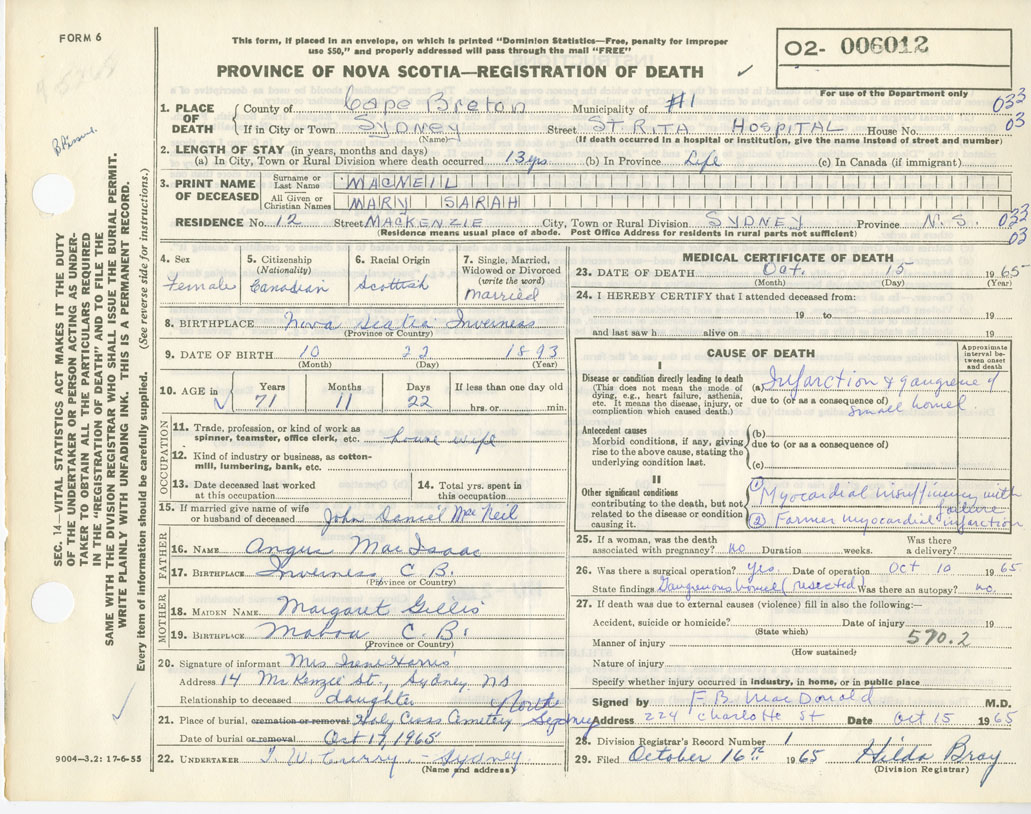 FORM 6
This form, if placed in an envelope, on which is printed "Dominion Statistics—Free, penalty for improper
use $50," and properly addressed will pass through the mail "FREE"
PROVINCE OF NOVA SCOTIA—REGISTRATION OF DEATH ✓
02- 006012
For use of the Department only
1. PLACE OF DEATH
County of Cape Breton Municipality of #1 033
If in City or Town SYDNEY Street ST. RITA HOSPITAL House No. 03
(Name) (If death occurred in a hospital or institution, give the name instead of street and number)
2. LENGTH OF STAY (in years, months and days)
(a) In City, Town or Rural Division where death occurred 13 yrs. (b) In Province Life (c) In Canada (if immigrant)
3. PRINT NAME OF DECEASED
Surname or Last Name MACNEIL
All Given or Christian Names MARY SARAH
RESIDENCE No. 12 Street MACKENZIE City, Town or Rural Division SYDNEY Province N.S. 033
(Residence means usual place of abode. Post Office Address for residents in rural parts not sufficient) 03
4. Sex
Female
5. Citizenship
(Nationality)
Canadian
6. Racial Origin
Scottish
7. Single, Married,
Widowed or Divorced
(write the word)
Married
8. BIRTHPLACE Nova Scotia Inverness
(Province or Country)
9. DATE OF BIRTH 10 22 1893
(Month) (Day) (Year)
10. AGE in ✓
Years 71
Months 11
Days 22
If less than one day old
hrs. or min.
OCCUPATION
11. Trade, profession, or kind of work as
spinner, teamster, office clerk, etc. house wife
12. Kind of industry or business, as cotton-
mill, lumbering, bank, etc.
13. Date deceased last worked
at this occupation
14. Total yrs. spent in
this occupation
15. If married give name of wife
or husband of deceased John Daniel MacNeil
FATHER
16. NAME Angus MacIsaac
17. BIRTHPLACE Inverness C.B.
(Province or Country)
MOTHER
18. MAIDEN NAME Margaret Gillis
19. BIRTHPLACE Mabou C.B.
(Province or Country)
20. Signature of informant Mrs Irene Harris
Address 14 McKenzie St., Sydney NS
Relationship to deceased daughter
21. Place of burial, cremation or removal Holy Cross Cemetery North Sydney
Date of burial or removal Oct 17, 1965
22. UNDERTAKER T. W. Curry. Sydney
(Name and address)
MEDICAL CERTIFICATE OF DEATH
23. DATE OF DEATH Oct. 15 1965
(Month) (Day) (Year)
24. I HEREBY CERTIFY that I attended deceased from:
19 to 19
and last saw h alive on 19
CAUSE OF DEATH
Approximate
interval be-
tween onset
and death
I
Disease or condition directly leading to death
(This does not mean the mode of
dying, e.g., heart failure, asthenia,
etc. It means the disease, injury, or
complication which caused death.)
(a) Infarction & gangrene of
due to (or as a consequence of)
small bowel
Antecedent causes
Morbid conditions, if any, giving
rise to the above cause, stating the
underlying condition last.
(b)
due to (or as a consequence of)
(c)
II
Other significant conditions
contributing to the death, but not
related to the disease or condition
causing it.
① Myocardial insufficiency with
failure
② Former myocardial infarction
25. If a woman, was the death
associated with pregnancy? no Duration weeks. Was there
a delivery?
26. Was there a surgical operation? Yes. Date of operation Oct 10 1965
State findings Gangrenous bowel (resected) Was there an autopsy? no.
27. If death was due to external causes (violence) fill in also the following:—
Accident, suicide or homicide? Date of injury 19
(State which)
Manner of injury 570.2
(How sustained)
Nature of injury
Specify whether injury occurred in industry, in home, or in public place
Signed by F. B. MacDonald M.D.
Address 224 Charlotte St Date Oct 15 1965
28. Division Registrar's Record Number 1
29. Filed October 16th 1965 Hilda Bray
(Division Registrar)
SEC. 14—VITAL STATISTICS ACT MAKES IT THE DUTY
OF THE UNDERTAKER OR PERSON ACTING AS UNDER-
TAKER TO OBTAIN ALL THE PARTICULARS REQUIRED
IN THE "REGISTRATION OF DEATH" AND TO FILE THE
SAME WITH THE DIVISION REGISTRAR WHO SHALL ISSUE THE BURIAL PERMIT.
WRITE PLAINLY WITH UNFADING INK. THIS IS A PERMANENT RECORD.
Every item of information should be carefully supplied. (See reverse side for instructions.)
9004—3.2: 17-6-55